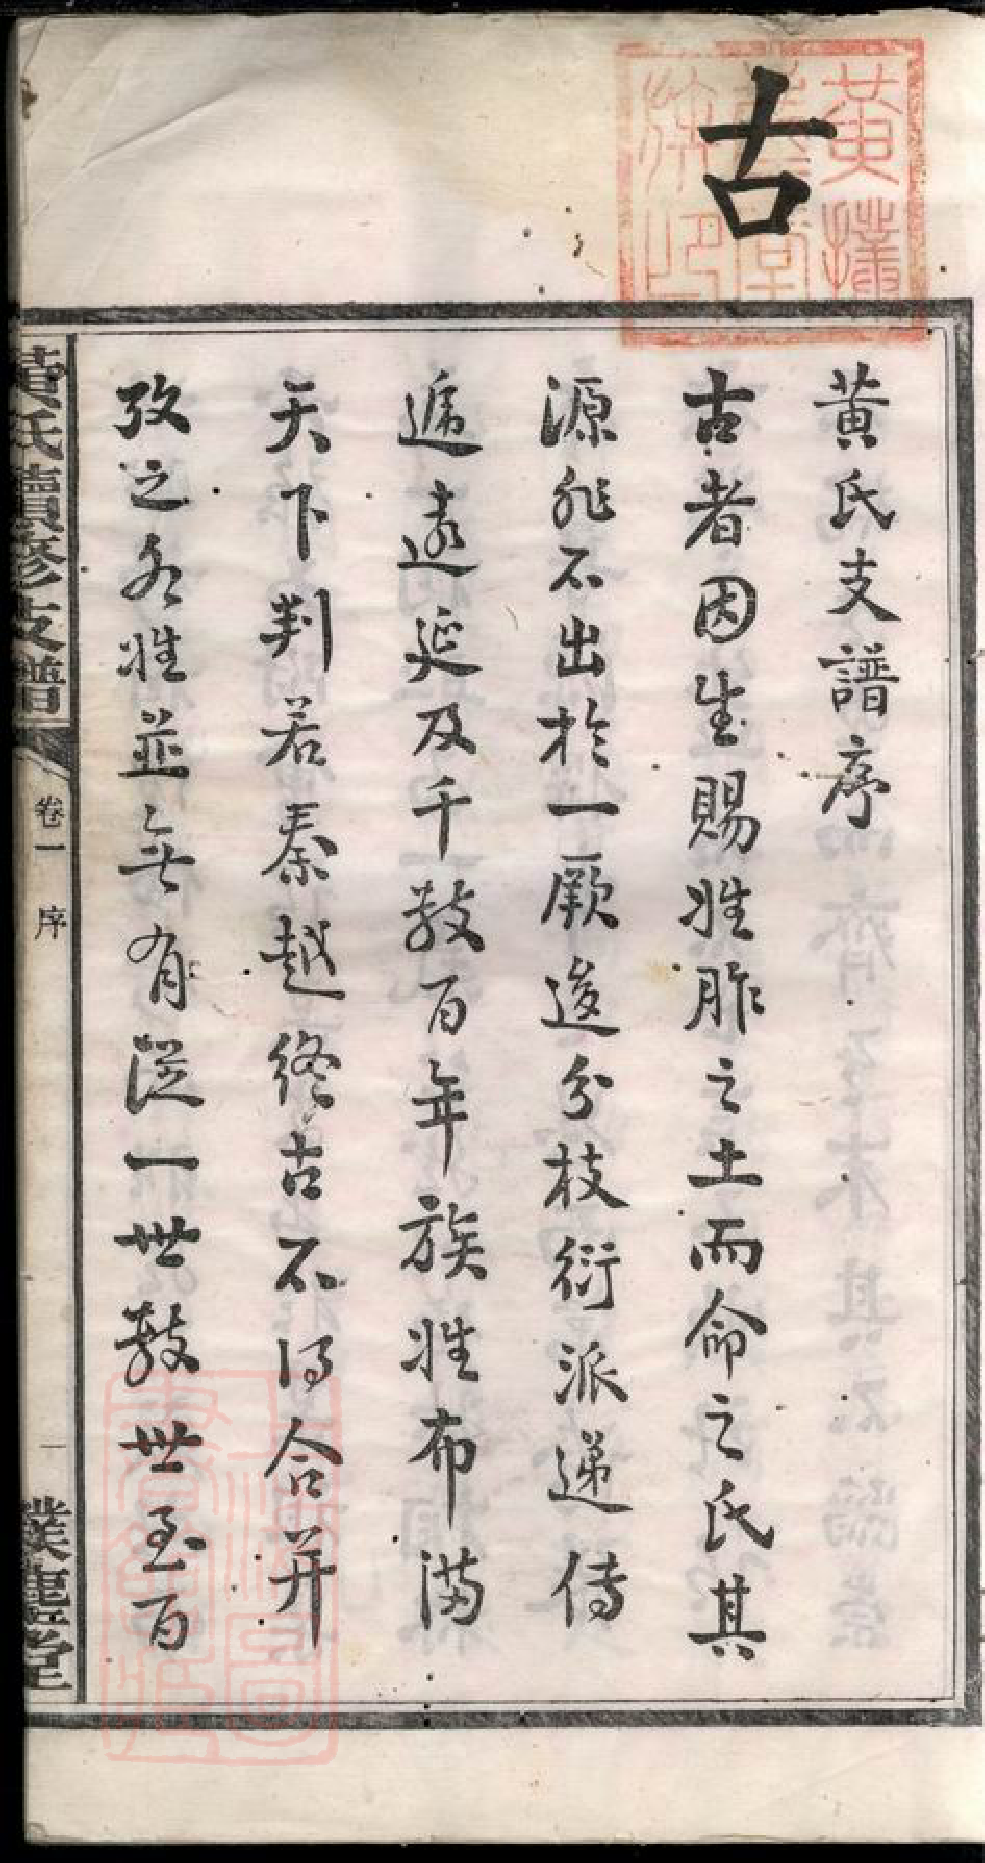 古
黄氏支譜序
古者因生賜姓胙之土而命之氏其
源非不出於一厥後分枝衍派遞傳
遞遠延及千數百年族姓布滿
天下判若秦越終古不得合并
攷之各姓並無有從一世數世至百
黃氏續修支譜
卷一 序
一
樸廛堂